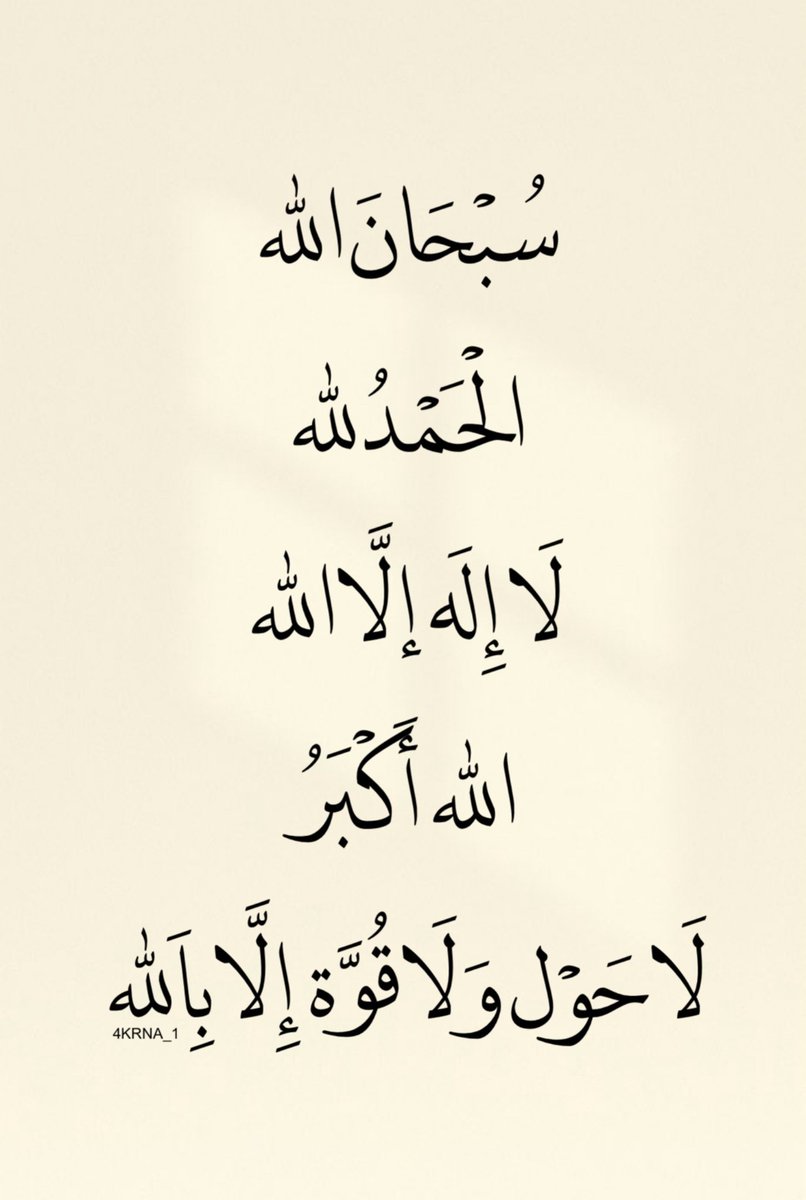 سُبْحَانَ الله
الْحَمْدُ لله
لَا إِلَه إلَّا الله
الله أَكْبَرُ
لَا حَوْل وَلَا قُوَّة إِلَّا بِاَلله
4KRNA_1